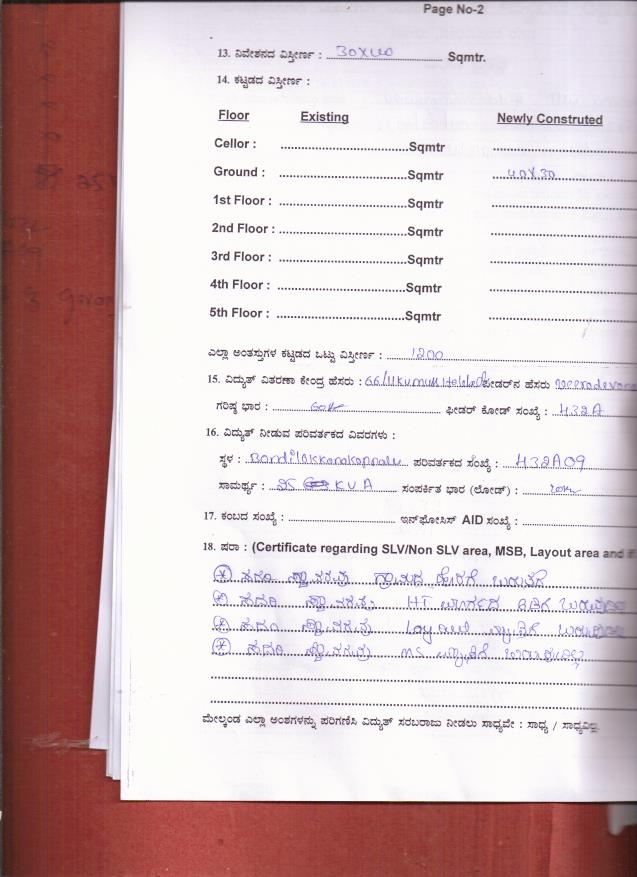 Page No-2
13. ನಿವೇಶನದ ವಿಸ್ತೀರ್ಣ : 30x40 Sqmtr.
14. ಕಟ್ಟಡದ ವಿಸ್ತೀರ್ಣ :
Floor Existing Newly Construted
Cellor : ......Sqmtr ......
Ground : ......Sqmtr 40x30
1st Floor : ......Sqmtr ......
2nd Floor : ......Sqmtr ......
3rd Floor : ......Sqmtr ......
4th Floor : ......Sqmtr ......
5th Floor : ......Sqmtr ......
ಎಲ್ಲಾ ಅಂತಸ್ತುಗಳ ಕಟ್ಟಡದ ಒಟ್ಟು ವಿಸ್ತೀರ್ಣ : 1200
15. ವಿದ್ಯುತ್ ವಿತರಣಾ ಕೇಂದ್ರ ಹೆಸರು : 66/11 ಫೀಡರ್‌ನ ಹೆಸರು
ಗರಿಷ್ಠ ಭಾರ : ಫೀಡರ್ ಕೋಡ್ ಸಂಖ್ಯೆ : 432A
16. ವಿದ್ಯುತ್ ನೀಡುವ ಪರಿವರ್ತಕದ ವಿವರಗಳು :
ಸ್ಥಳ : ಪರಿವರ್ತಕದ ಸಂಖ್ಯೆ : 432A09
ಸಾಮರ್ಥ್ಯ : 25 KVA ಸಂಪರ್ಕಿತ ಭಾರ (ಲೋಡ್) :
17. ಕಂಬದ ಸಂಖ್ಯೆ : ...... ಇನ್‌ಫೋಸಿಸ್ AID ಸಂಖ್ಯೆ : ......
18. ಷರಾ : (Certificate regarding SLV/Non SLV area, MSB, Layout area and
ಸದರಿ ಸ್ಥಾವರವು ಗ್ರಾಮದ ಹೊರಗೆ ಬರುತ್ತದೆ
ಸದರಿ ಸ್ಥಾವರವು HT ಮಾರ್ಗದ
ಸದರಿ ಸ್ಥಾವರವು Layout ವ್ಯಾಪ್ತಿಗೆ
ಸದರಿ ಸ್ಥಾವರವು MS ವ್ಯಾಪ್ತಿಗೆ ಬರುವುದಿಲ್ಲ
ಮೇಲ್ಕಂಡ ಎಲ್ಲಾ ಅಂಶಗಳನ್ನು ಪರಿಗಣಿಸಿ ವಿದ್ಯುತ್ ಸರಬರಾಜು ನೀಡಲು ಸಾಧ್ಯವೇ : ಸಾಧ್ಯ / ಸಾಧ್ಯವಿಲ್ಲ